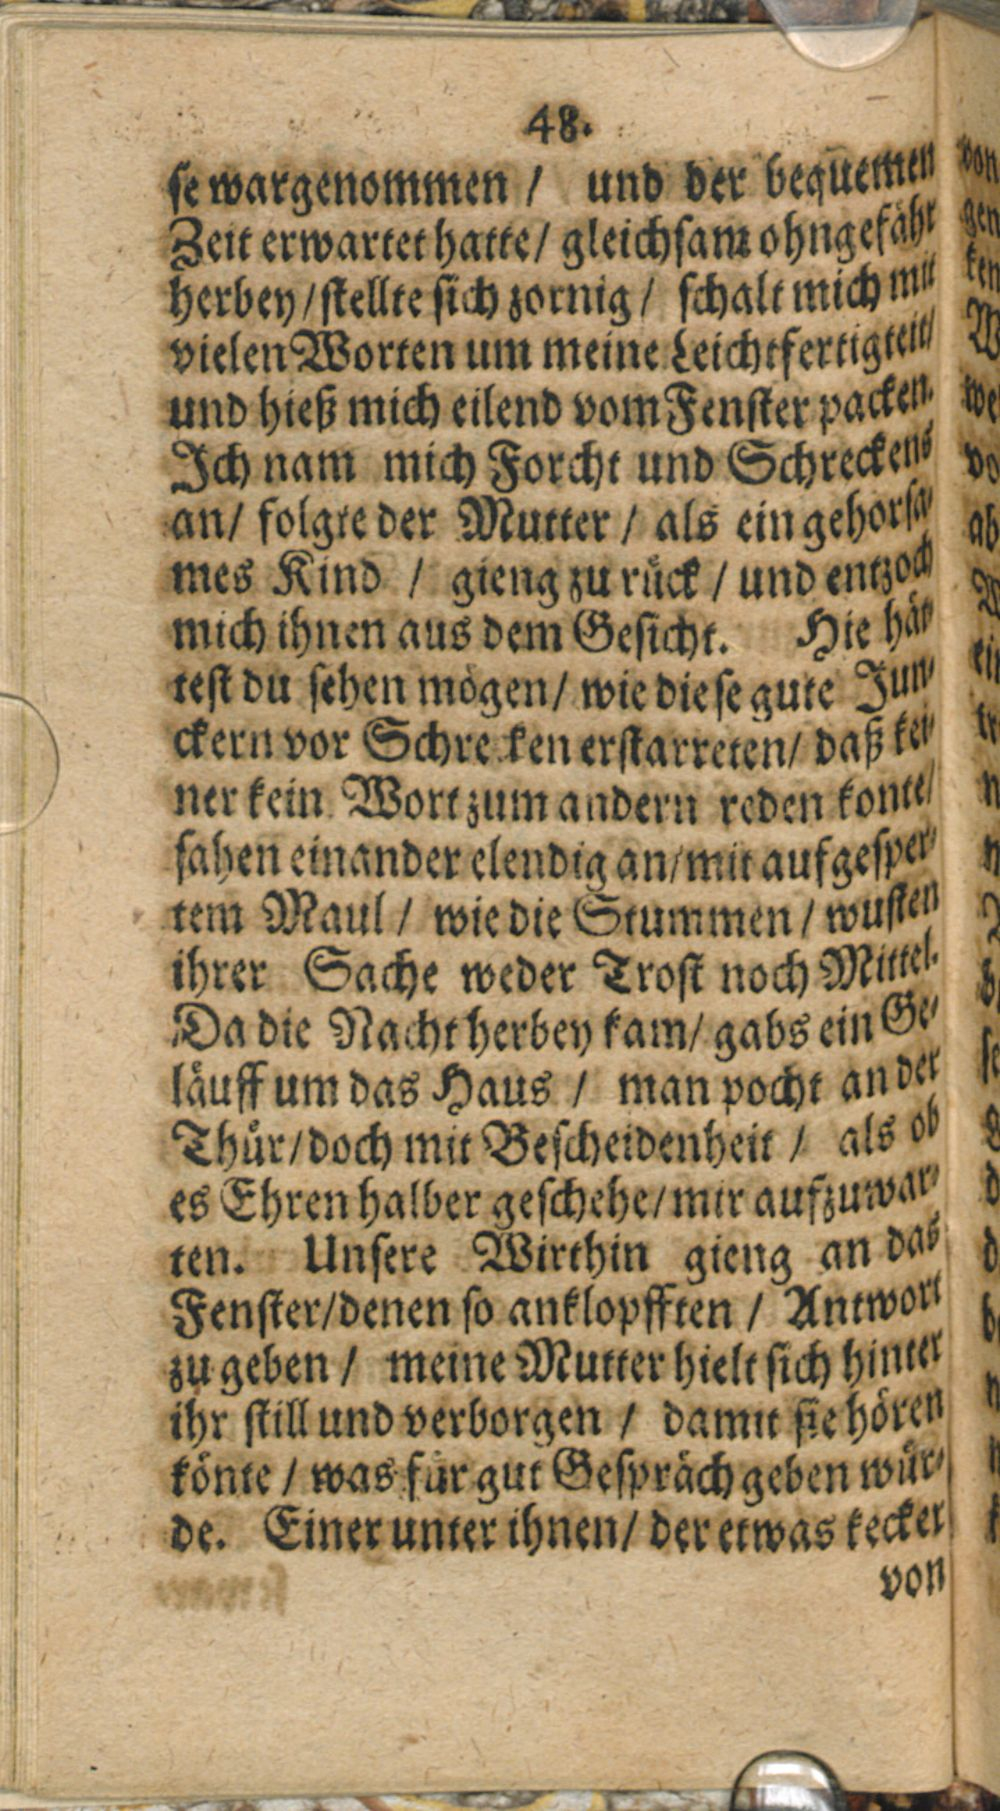 48.
se wargenommen / und der bequemen
Zeit erwartet hatte/ gleichsam ohngefähr
herbey/stellte sich zornig/ schalt mich mit
vielen Worten um meine Leichtfertigkeit/
und hieß mich eilend vom Fenster packen.
Ich nam mich Forcht und Schreckens
an/ folgte der Mutter / als ein gehorsa-
mes Kind / gieng zu rück / und entzoch
mich ihnen aus dem Gesicht. Hie hät-
test du sehen mögen/ wie diese gute Jun-
ckern vor Schrecken erstarreten/ daß kei-
ner kein Wort zum andern reden konte/
sahen einander elendig an/mit aufgesper-
tem Maul / wie die Stummen / wusten
ihrer Sache weder Trost noch Mittel.
Da die Nacht herbey kam/ gabs ein Ge-
läuff um das Haus / man pocht an der
Thür/doch mit Bescheidenheit / als ob
es Ehren halber geschehe/mir aufzuwar-
ten. Unsere Wirthin gieng an das
Fenster/denen so anklopfften / Antwort
zu geben / meine Mutter hielt sich hinter
ihr still und verborgen / damit sie hören
könte / was für gut Gespräch geben wür-
de. Einer unter ihnen/ der etwas kecker
von